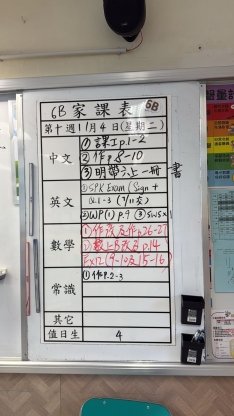 6B 家課表 6B
第十週 11月4日(星期二)
中文
①課工p.1-2
②作p.8-10
③明帶六上一冊書
英文
①SPK Exam (Sign +
Q.1-3 (7/11交)
②WP(1) p.9 ③SWS×1
數學
①作改及作p.26-27
②數上B改及p.14
Ex12 (9-10及15-16)
常識
①作p.2-3
其它
值日生 4